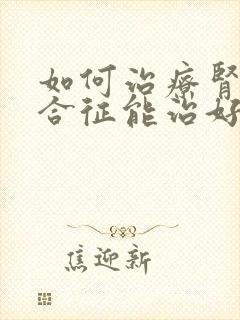 如何治療腎
合征能治好
焦迎新